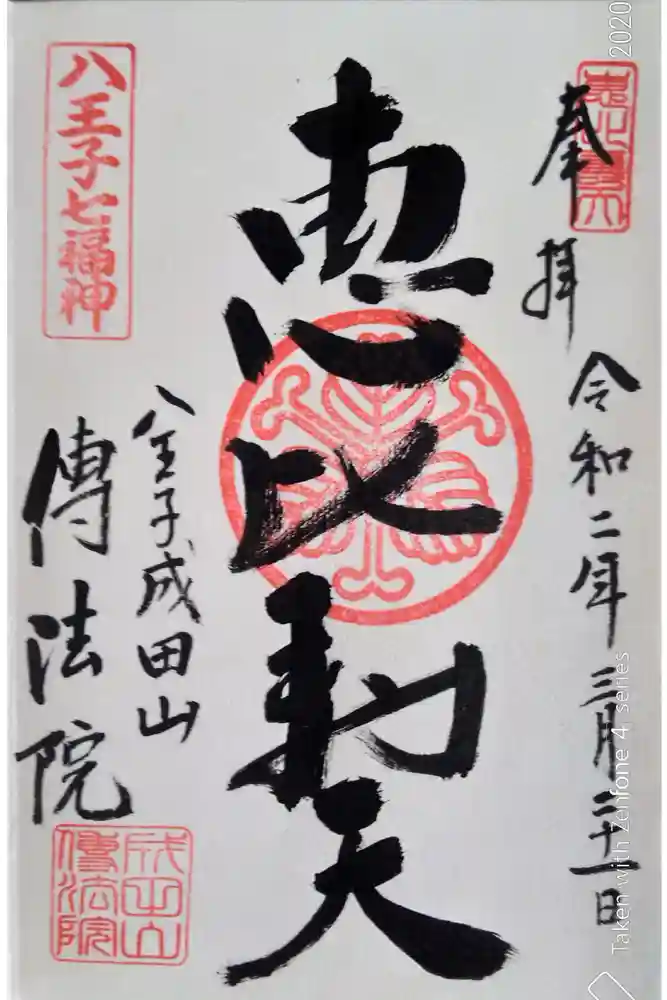 奉拝
令和二年三月二十一日
恵比寿天
八王子七福神
八王子成田山
傳法院
成田山
傳法院
2020
Taken with Zenfone 4 series